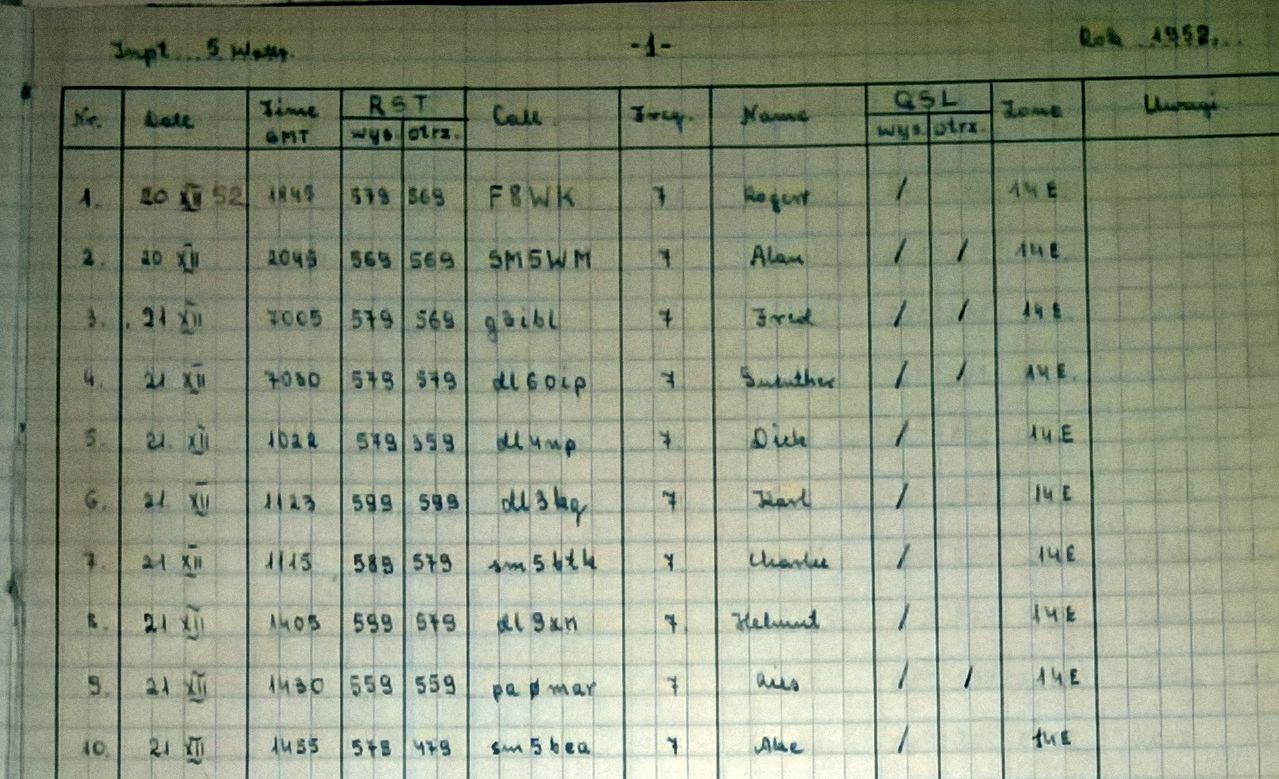 Inpt ... 5 Watt. -1- Rok 1952...
Nr. Date Time GMT RST wys. otrz. Call Freq. Name QSL wys. otrz. Zone Uwagi
1. 20 XII 52 1845 579 569 F8WK 7 Rogert / 14 E
2. 20 XII 2045 569 569 SM5WM 7 Alan / / 14 E
3. 21 XII 7005 579 569 g3ibl 7 Fred / / 14 E
4. 21 XII 7030 579 579 dl6oip 7 / / 14 E
5. 21. XII 1022 579 359 dl4np 7 Dick / 14 E
6. 21 XII 1123 599 599 dl3kg 7 Karl / 14 E
7. 21 XII 1115 589 579 sm5btk 7 Charlie / 14 E
8. 21 XII 1405 599 579 dl9xn 7. Helmut / 14 E
9. 21 XII 1430 559 559 paømar 7 / / 14 E
10. 21 XII 1455 579 479 sm5bea 7 Ake / 14 E